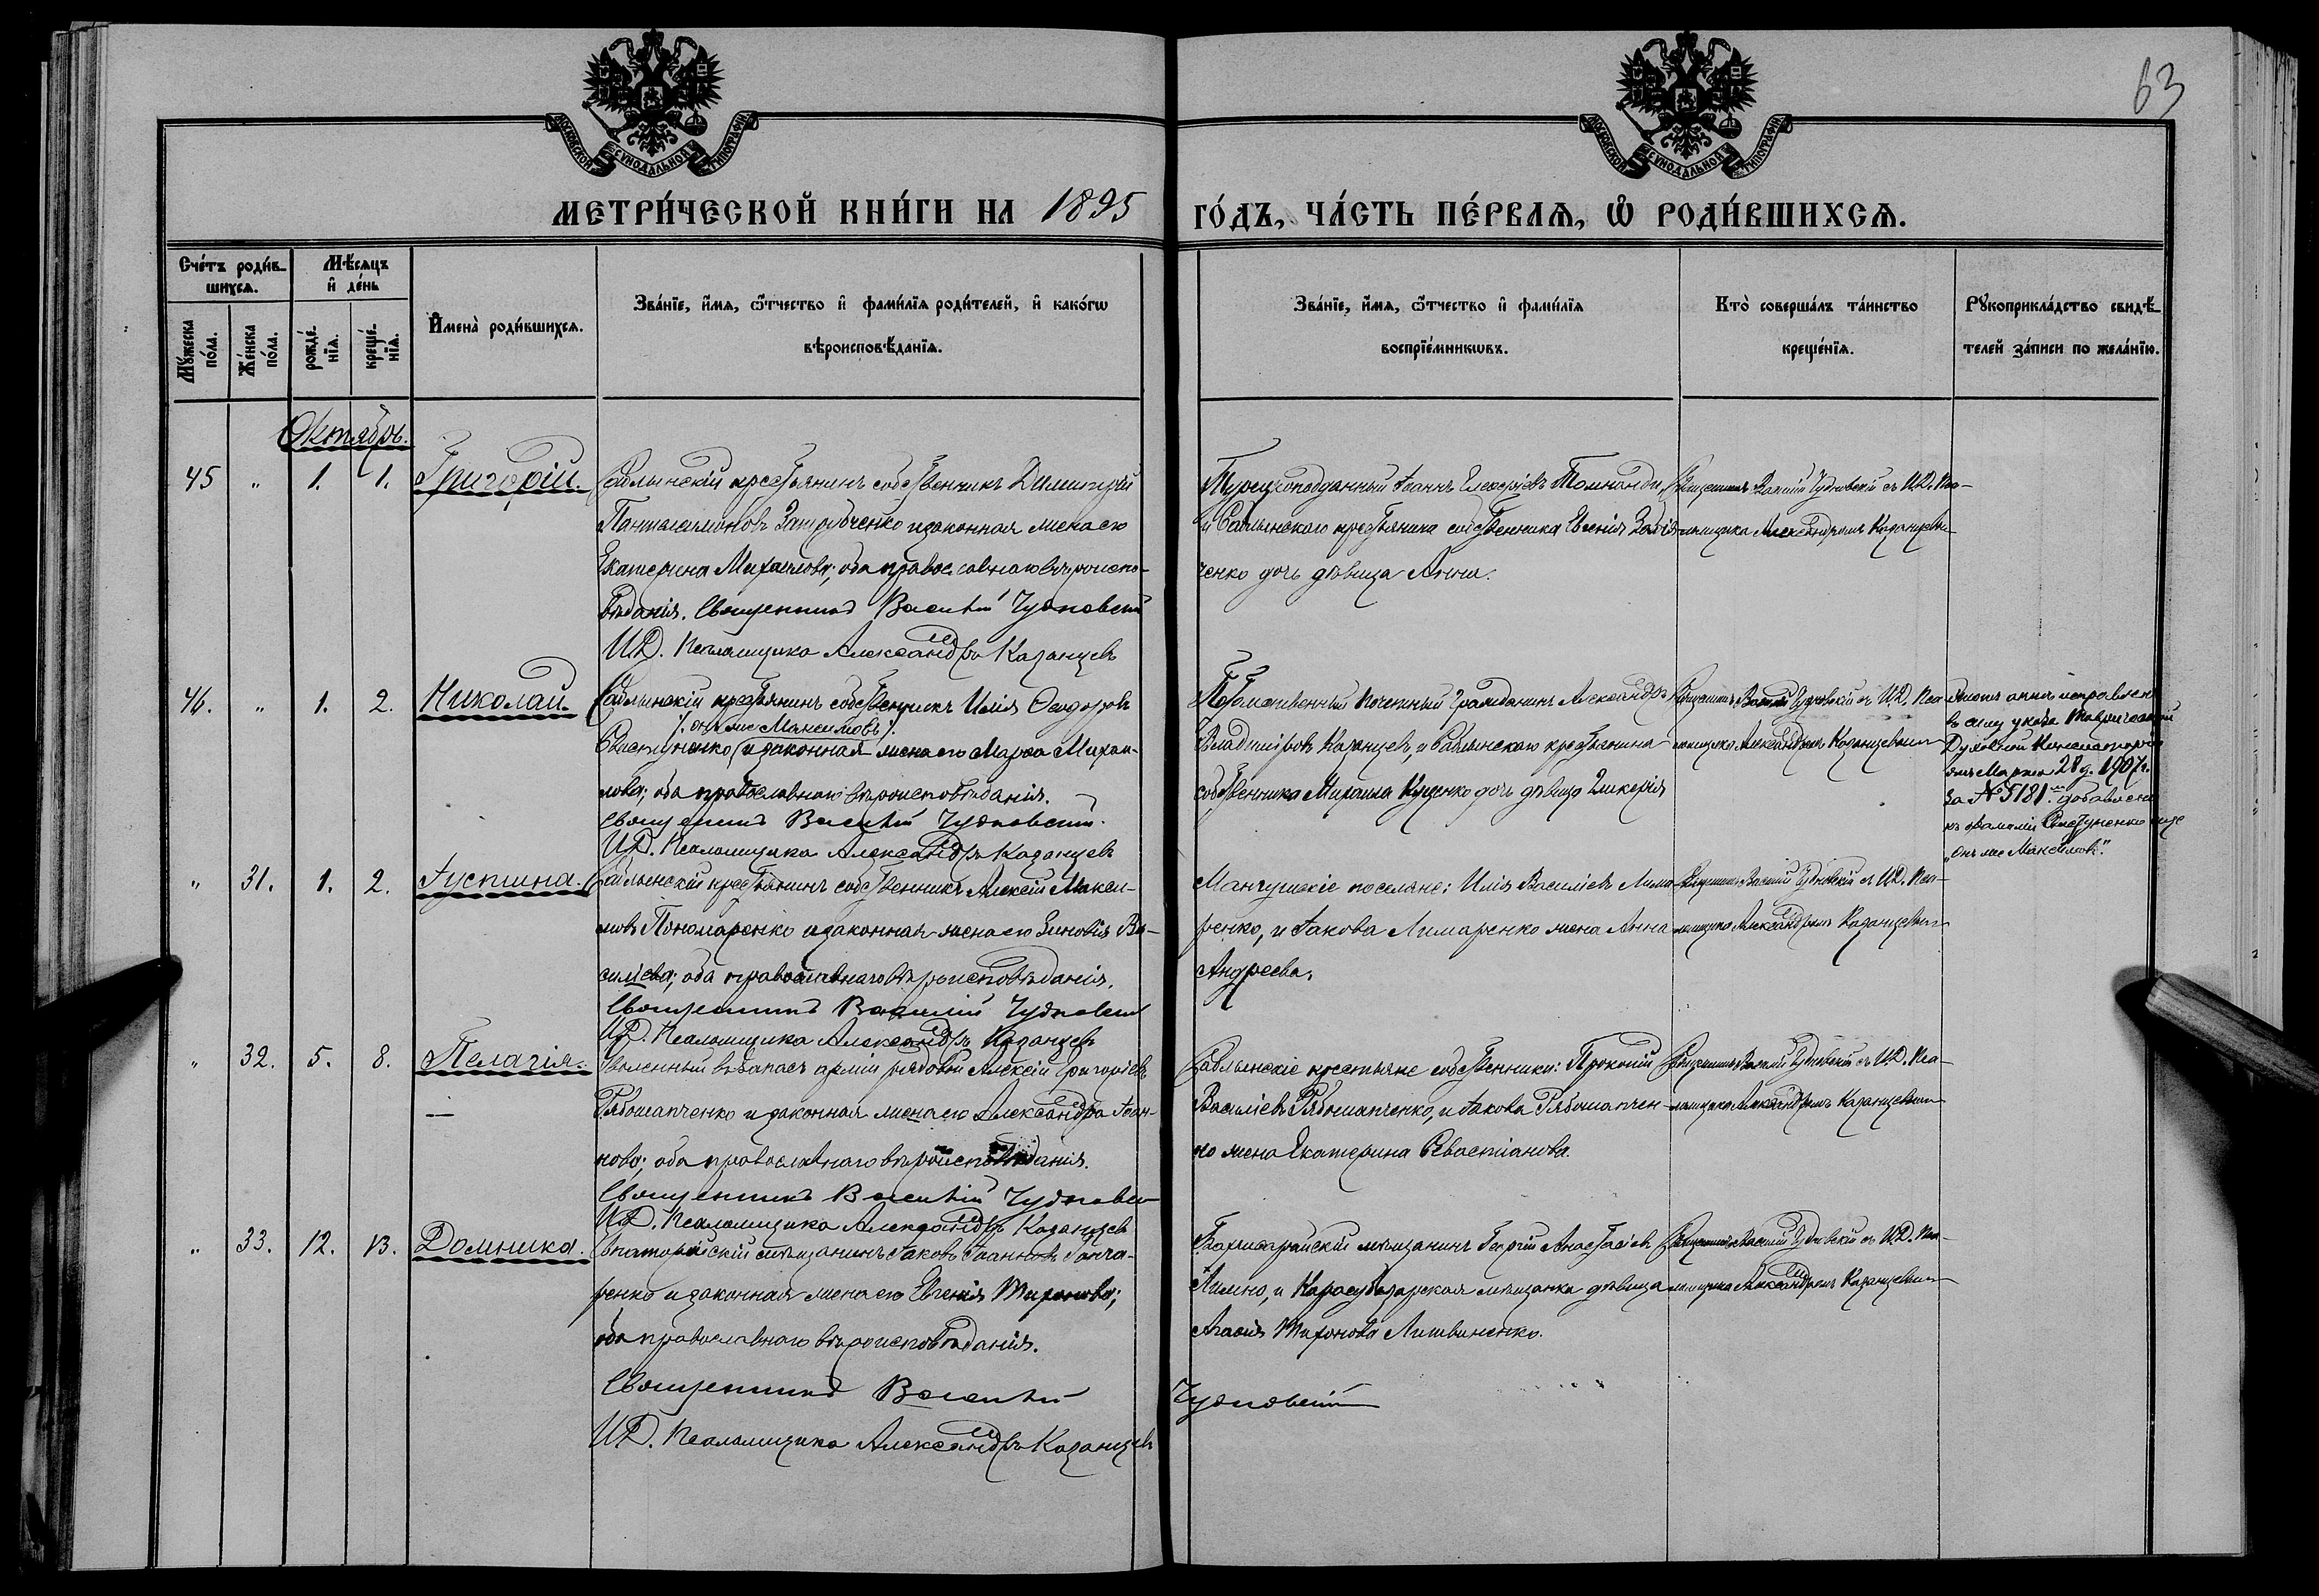 63
МОСКОВСКОЙ СѴНОДАЛЬНОЙ ТИПОГРАФІИ
МОСКОВСКОЙ СѴНОДАЛЬНОЙ ТИПОГРАФІИ
МЕТРИ́ЧЕСКОЙ КНИ́ГИ НА 1895
ГО́ДЪ, ЧА́СТЬ ПЕ́РВАЯ, Ѽ РОДИ́ВШИХСЯ.
Счетъ роди́в-
шихся.
Мѣсяцъ
и҆ день
Мꙋжеска
по́ла.
Женска
по́ла.
рожде́-
нїя.
креще́-
нїя.
И҆мена̀ роди́вшихся.
Зва́нїе, и҆мя, ѻ҆тчество и҆ фами́лїя роди́телей, и҆ како́гѡ
вѣроисповѣ́данїя.
Зва́нїе, и҆мя, ѻ҆тчество и҆ фами́лїя
воспрїе́мникѡвъ.
Кто̀ соверша́лъ та́инство
креще́нїя.
Рꙋкоприкла́дство свидѣ́-
телей за́писи по жела́нїю.
Октябрь.
45 " 1. 1. Григорій.
Саблынскій крестьянинъ собственникъ Димитрій
Пантелимоновъ и законная жена его
Екатерина Михаилова; оба православнаго вѣроиспо-
вѣданія. Священникъ Василій Чудновскій
И.Д. Псаломщика Александръ Казанцевъ
Турецкоподданный Іоаннъ
и Саблынскаго крестьянина собственника Евгенія
ченко дочь дѣвица Анна.
Священникъ Василій Чудновскій съ И.Д. Пса-
ломщика Александромъ Казанцевым
46. " 1. 2. Николай.
Саблынскій крестьянинъ собственникъ Илія Ѳеодоровъ
/: онъ же Максимовъ :/
и законная жена его Марѳа Михаи-
лова; оба православнаго вѣроисповѣданія.
Священникъ Василій Чудновскій.
И.Д. Псаломщика Александръ Казанцевъ
Потомственный Почетный Гражданинъ Александръ
Владиміровъ Казанцевъ, и Саблынскаго крестьянина
собственника Михаила Куценко дочь дѣвица Гликерія
Священникъ Василій Чудновскій съ И.Д. Пса-
ломщика Александромъ Казанцевым
Этотъ актъ исправленъ
въ силу указа Таврической
Духовной Консисторіи
отъ Марта 28 д. 1907 г.
за № 5181. добавлено
къ фамиліи еще
„онъ же Максимовъ".
" 31. 1. 2. Іустина.
Саблынскій крестьянинъ собственникъ Алексій Макси-
мовъ Пономаренко и законная жена его Зиновія Ва-
силіева; оба православнаго вѣроисповѣданія.
Священникъ Василій Чудновскій
И.Д. Псаломщика Александръ Казанцевъ
Мангушскіе поселяне: Илія Василіевъ Лима-
ренко, и Іакова Лимаренко жена Анна
Андреева.
Священникъ Василій Чудновскій съ И.Д. Пса-
ломщика Александромъ Казанцевым
" 32. 5. 8. Пелагія.
Уволенный въ запасъ арміи рядовой Алексій Григоріевъ
Рябошапченко и законная жена его Александра Іоан-
нова; оба православнаго вѣроисповѣданія.
Священникъ Василій Чудновск
И.Д. Псаломщика Александръ Казанцевъ
Саблынскіе крестьяне собственники: Прокопій
Василіевъ Рябошапченко, и Іакова Рябошапчен-
ко жена Екатерина Севастіанова.
Священникъ Василій Чудновскій съ И.Д. Пса-
ломщика Александромъ Казанцевым
" 33. 12. 13. Домника.
Евпаторійскій мѣщанинъ Іаковъ Іоанновъ Гонча-
ренко и законная жена его Евгенія Тихонова;
оба православнаго вѣроисповѣданія.
Священникъ Василій Чудновскій
И.Д. Псаломщика Александръ Казанцевъ
Бахчисарайскій мѣщанинъ Георгій Анастасіевъ
и Карасубазарская мѣщанка дѣвица
Агаѳія Тихонова Литвиненко.
Священникъ Василій Чудновскій съ И.Д. Пса-
ломщика Александромъ Казанцевым